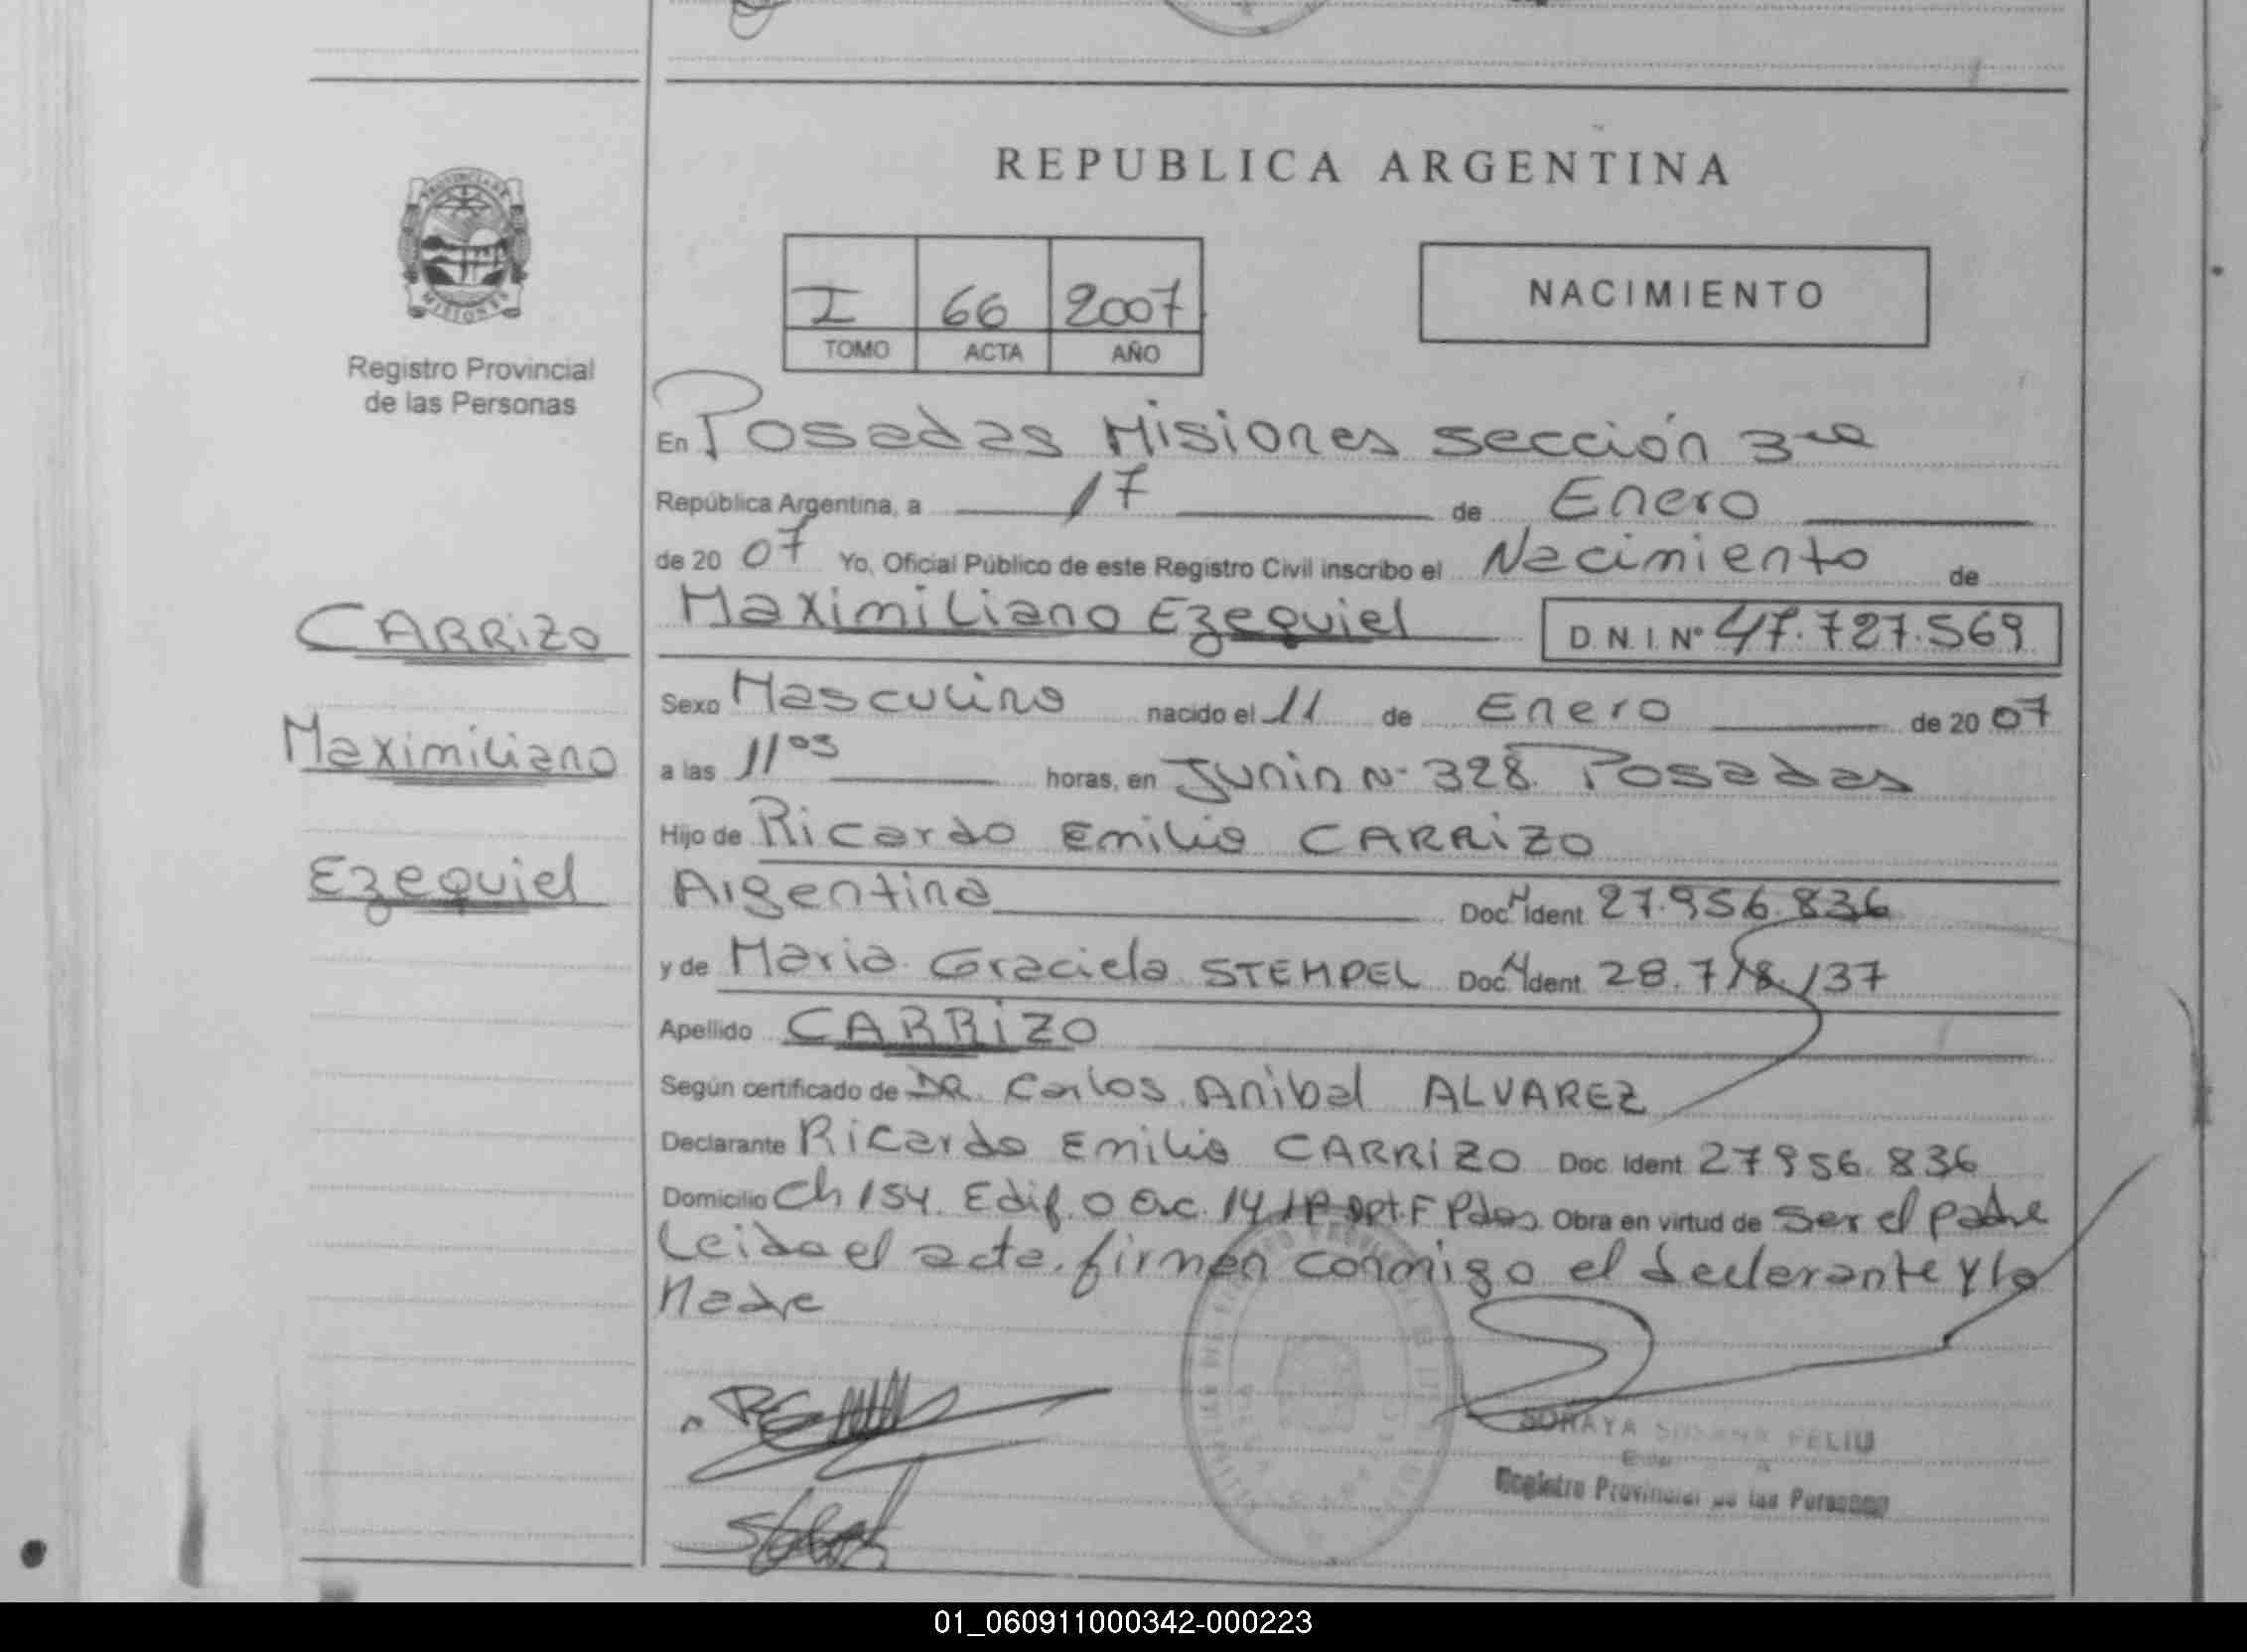 REPUBLICA ARGENTINA
PROVINCIA DE
MISIONES
Registro Provincial
de las Personas
I 66 2007
TOMO ACTA AÑO
NACIMIENTO
En Posadas Misiones sección 3ra
República Argentina, a 17 de Enero
de 20 07 Yo, Oficial Público de este Registro Civil inscribo el Nacimiento de
CARRIZO
Maximiliano
Ezequiel
Maximiliano Ezequiel D.N.I. Nº 47.727.569
Sexo Masculino nacido el 11 de Enero de 20 07
a las 11 05 horas, en Junin Nº 328. Posadas
Hijo de Ricardo Emilio CARRIZO
Argentina Doc. Ident. 27.956.836
y de Maria Graciela STEMPEL Doc. Ident. 28.718.137
Apellido CARRIZO
Según certificado de DR. Carlos Anibal ALVAREZ
Declarante Ricardo Emilio CARRIZO Doc. Ident. 27956.836
Domicilio Ch 154. Edif. O Esc. 14 1P Dpt. F Pdas. Obra en virtud de ser el padre
Leida el acta, firman conmigo el declarante y la
Madre
SORAYA SUSANA FELIU
Registro Provincial de las Personas
01_060911000342-000223